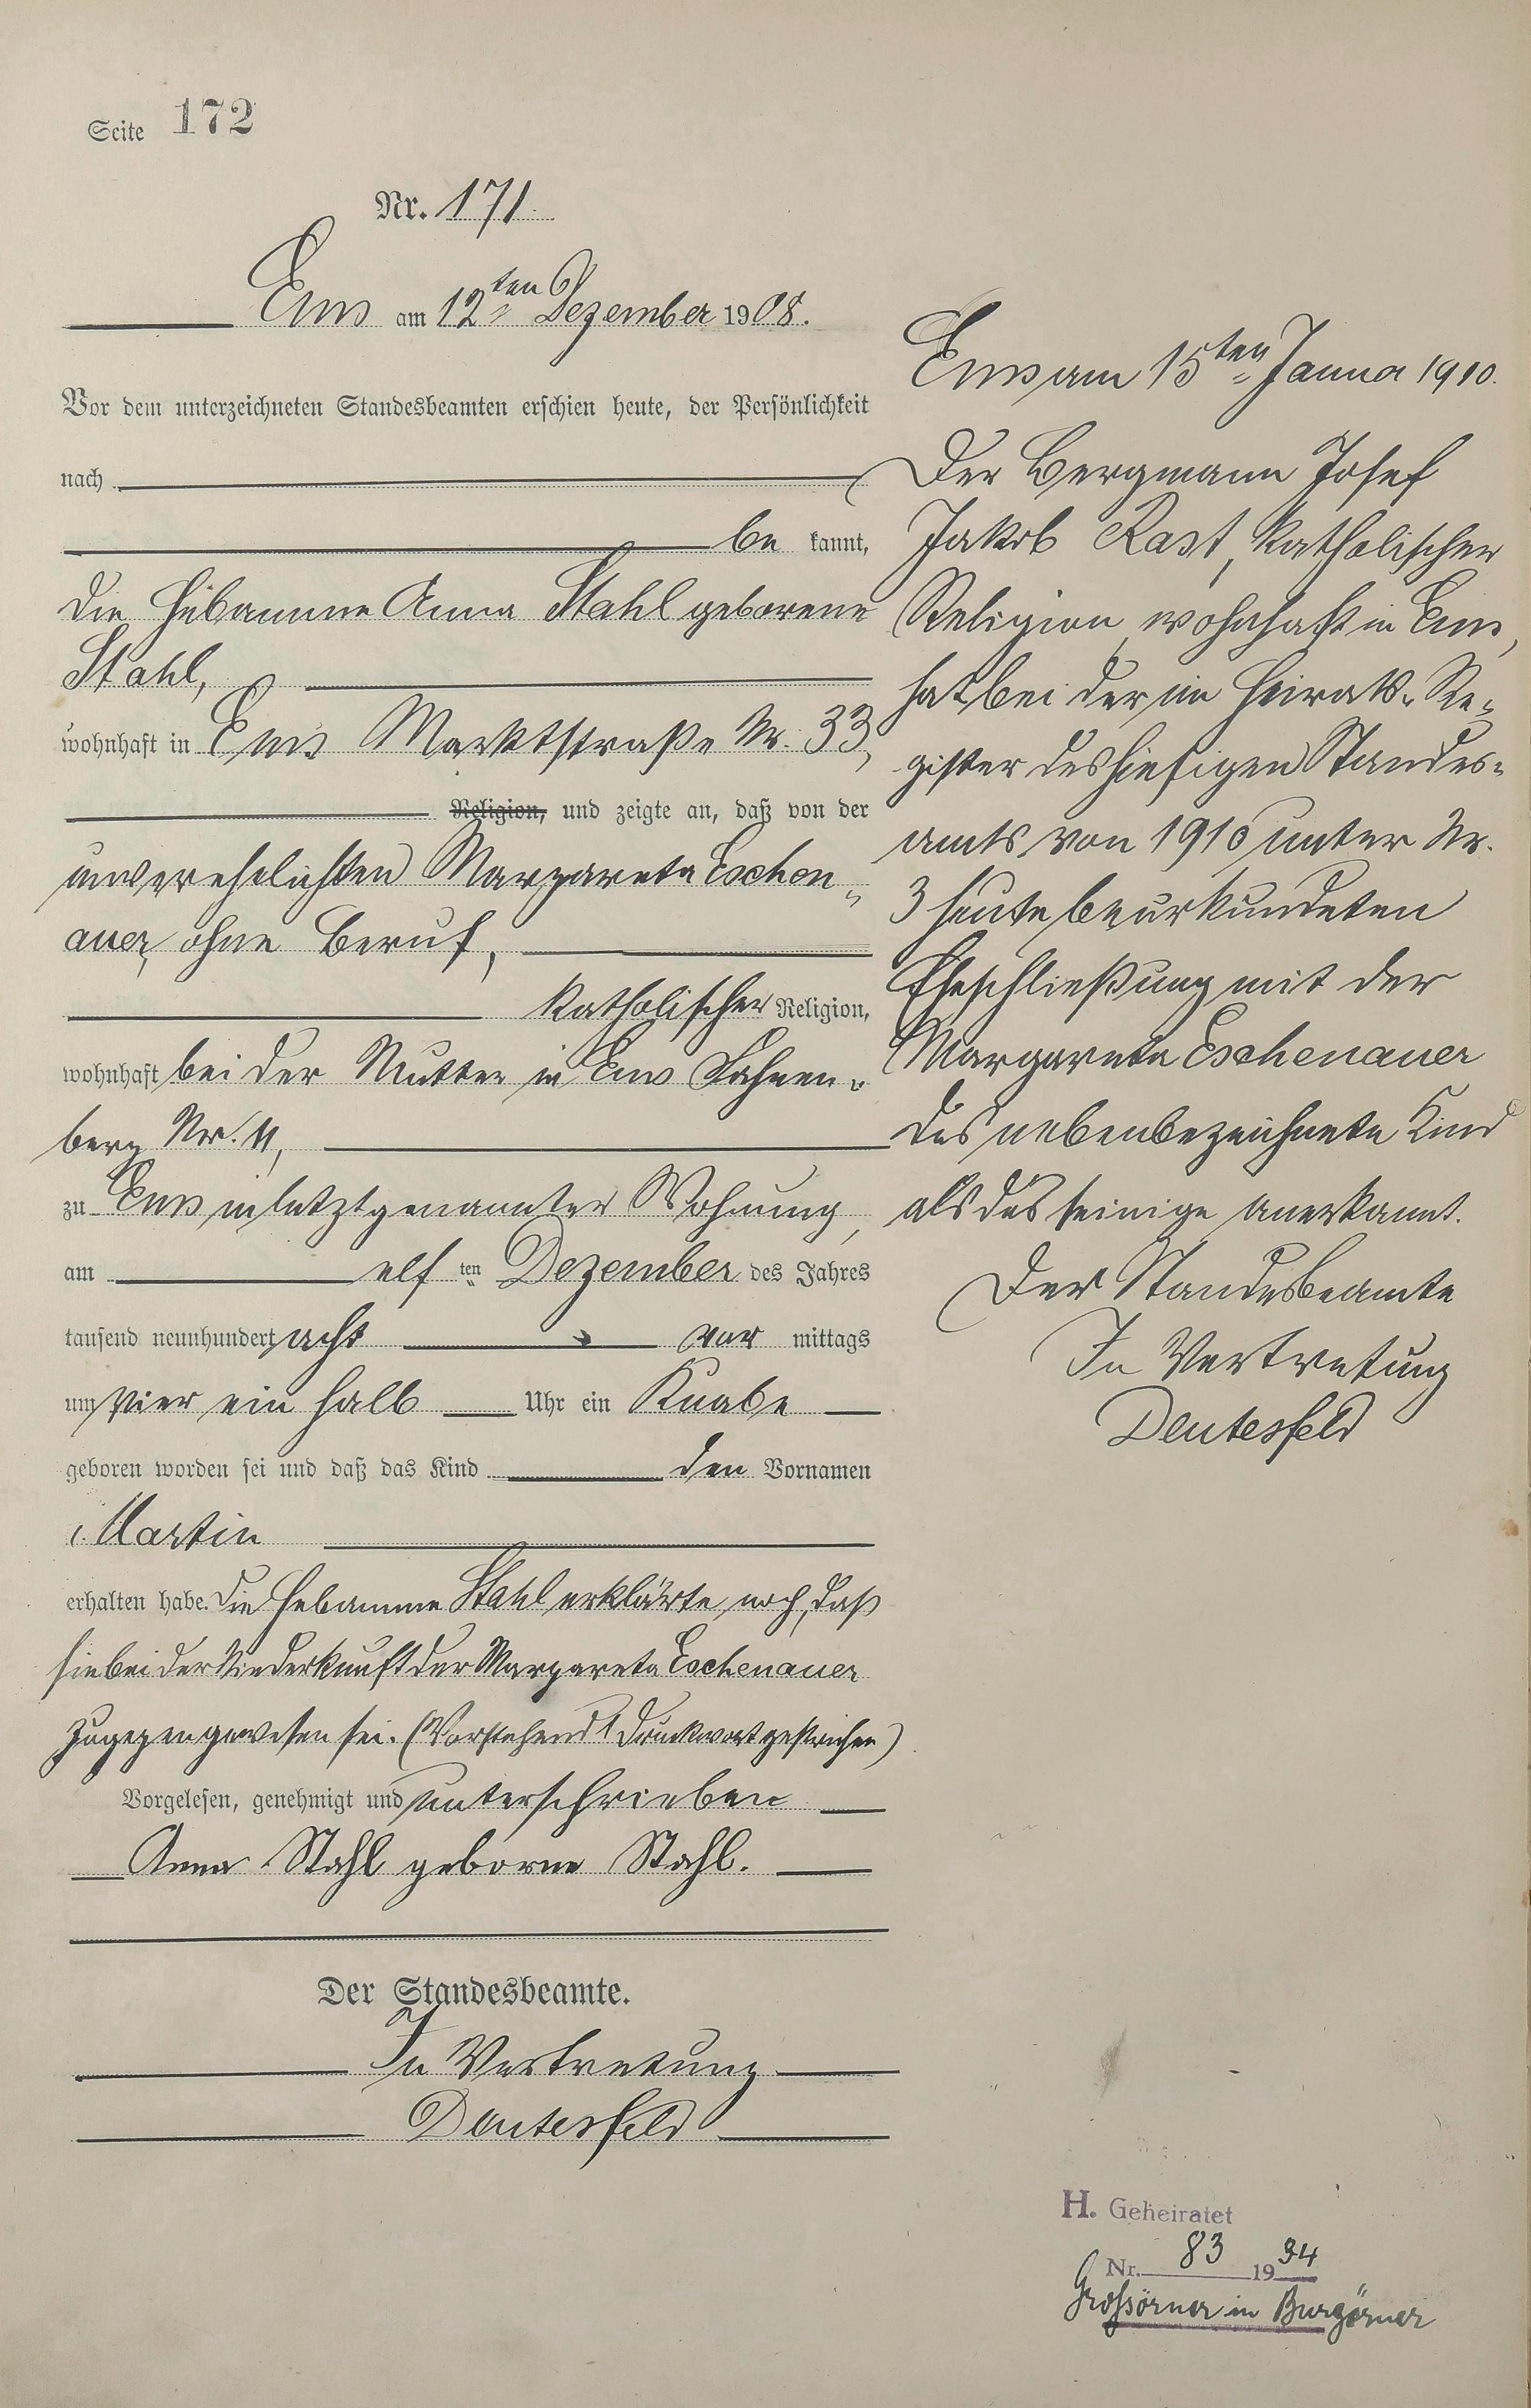 Seite 172
Nr. 171.
Ems am 12ten Dezember 1908.
Vor dem unterzeichneten Standesbeamten erschien heute, der Persönlichkeit
nach
be kannt,
die Hebamme Anna Stahl geborene
Stahl,
wohnhaft in Ems Marktstraße Nr. 33,
Religion, und zeigte an, daß von der
unverehelichten Margareta Eschen-
auer, ohne Beruf,
katholischer Religion,
wohnhaft bei der Mutter in Ems Fahnen-
berg Nr. 11,
zu Ems in letztgenannter Wohnung,
am elf ten Dezember des Jahres
tausend neunhundert acht vor mittags
um vier ein halb Uhr ein Knabe
geboren worden sei und daß das Kind den Vornamen
Martin
erhalten habe. Die Hebamme Stahl erklärte noch, daß
sie bei der Niederkunft der Margareta Eschenauer
zugegen gewesen sei. (Vorstehend 1 Druckwort gestrichen)
Vorgelesen, genehmigt und unterschrieben
Anna Stahl geborne Stahl.
Der Standesbeamte.
In Vertretung
Deutesfeld
Ems am 15ten Janua 1910.
Der Bergmann Josef
Jakob Rast, katholischer
Religion, wohnhaft in Ems,
hat bei der im Heirats-Re-
gister des hiesigen Standes-
amts von 1910 unter Nr.
3 heute beurkundeten
Eheschließung mit der
Margareta Eschenauer
das nebenbezeichnete Kind
als das seinige anerkannt.
Der Standesbeamte
In Vertretung
Deutesfeld
H. Geheiratet
Nr. 83 1934
Grossörner in Burgörner